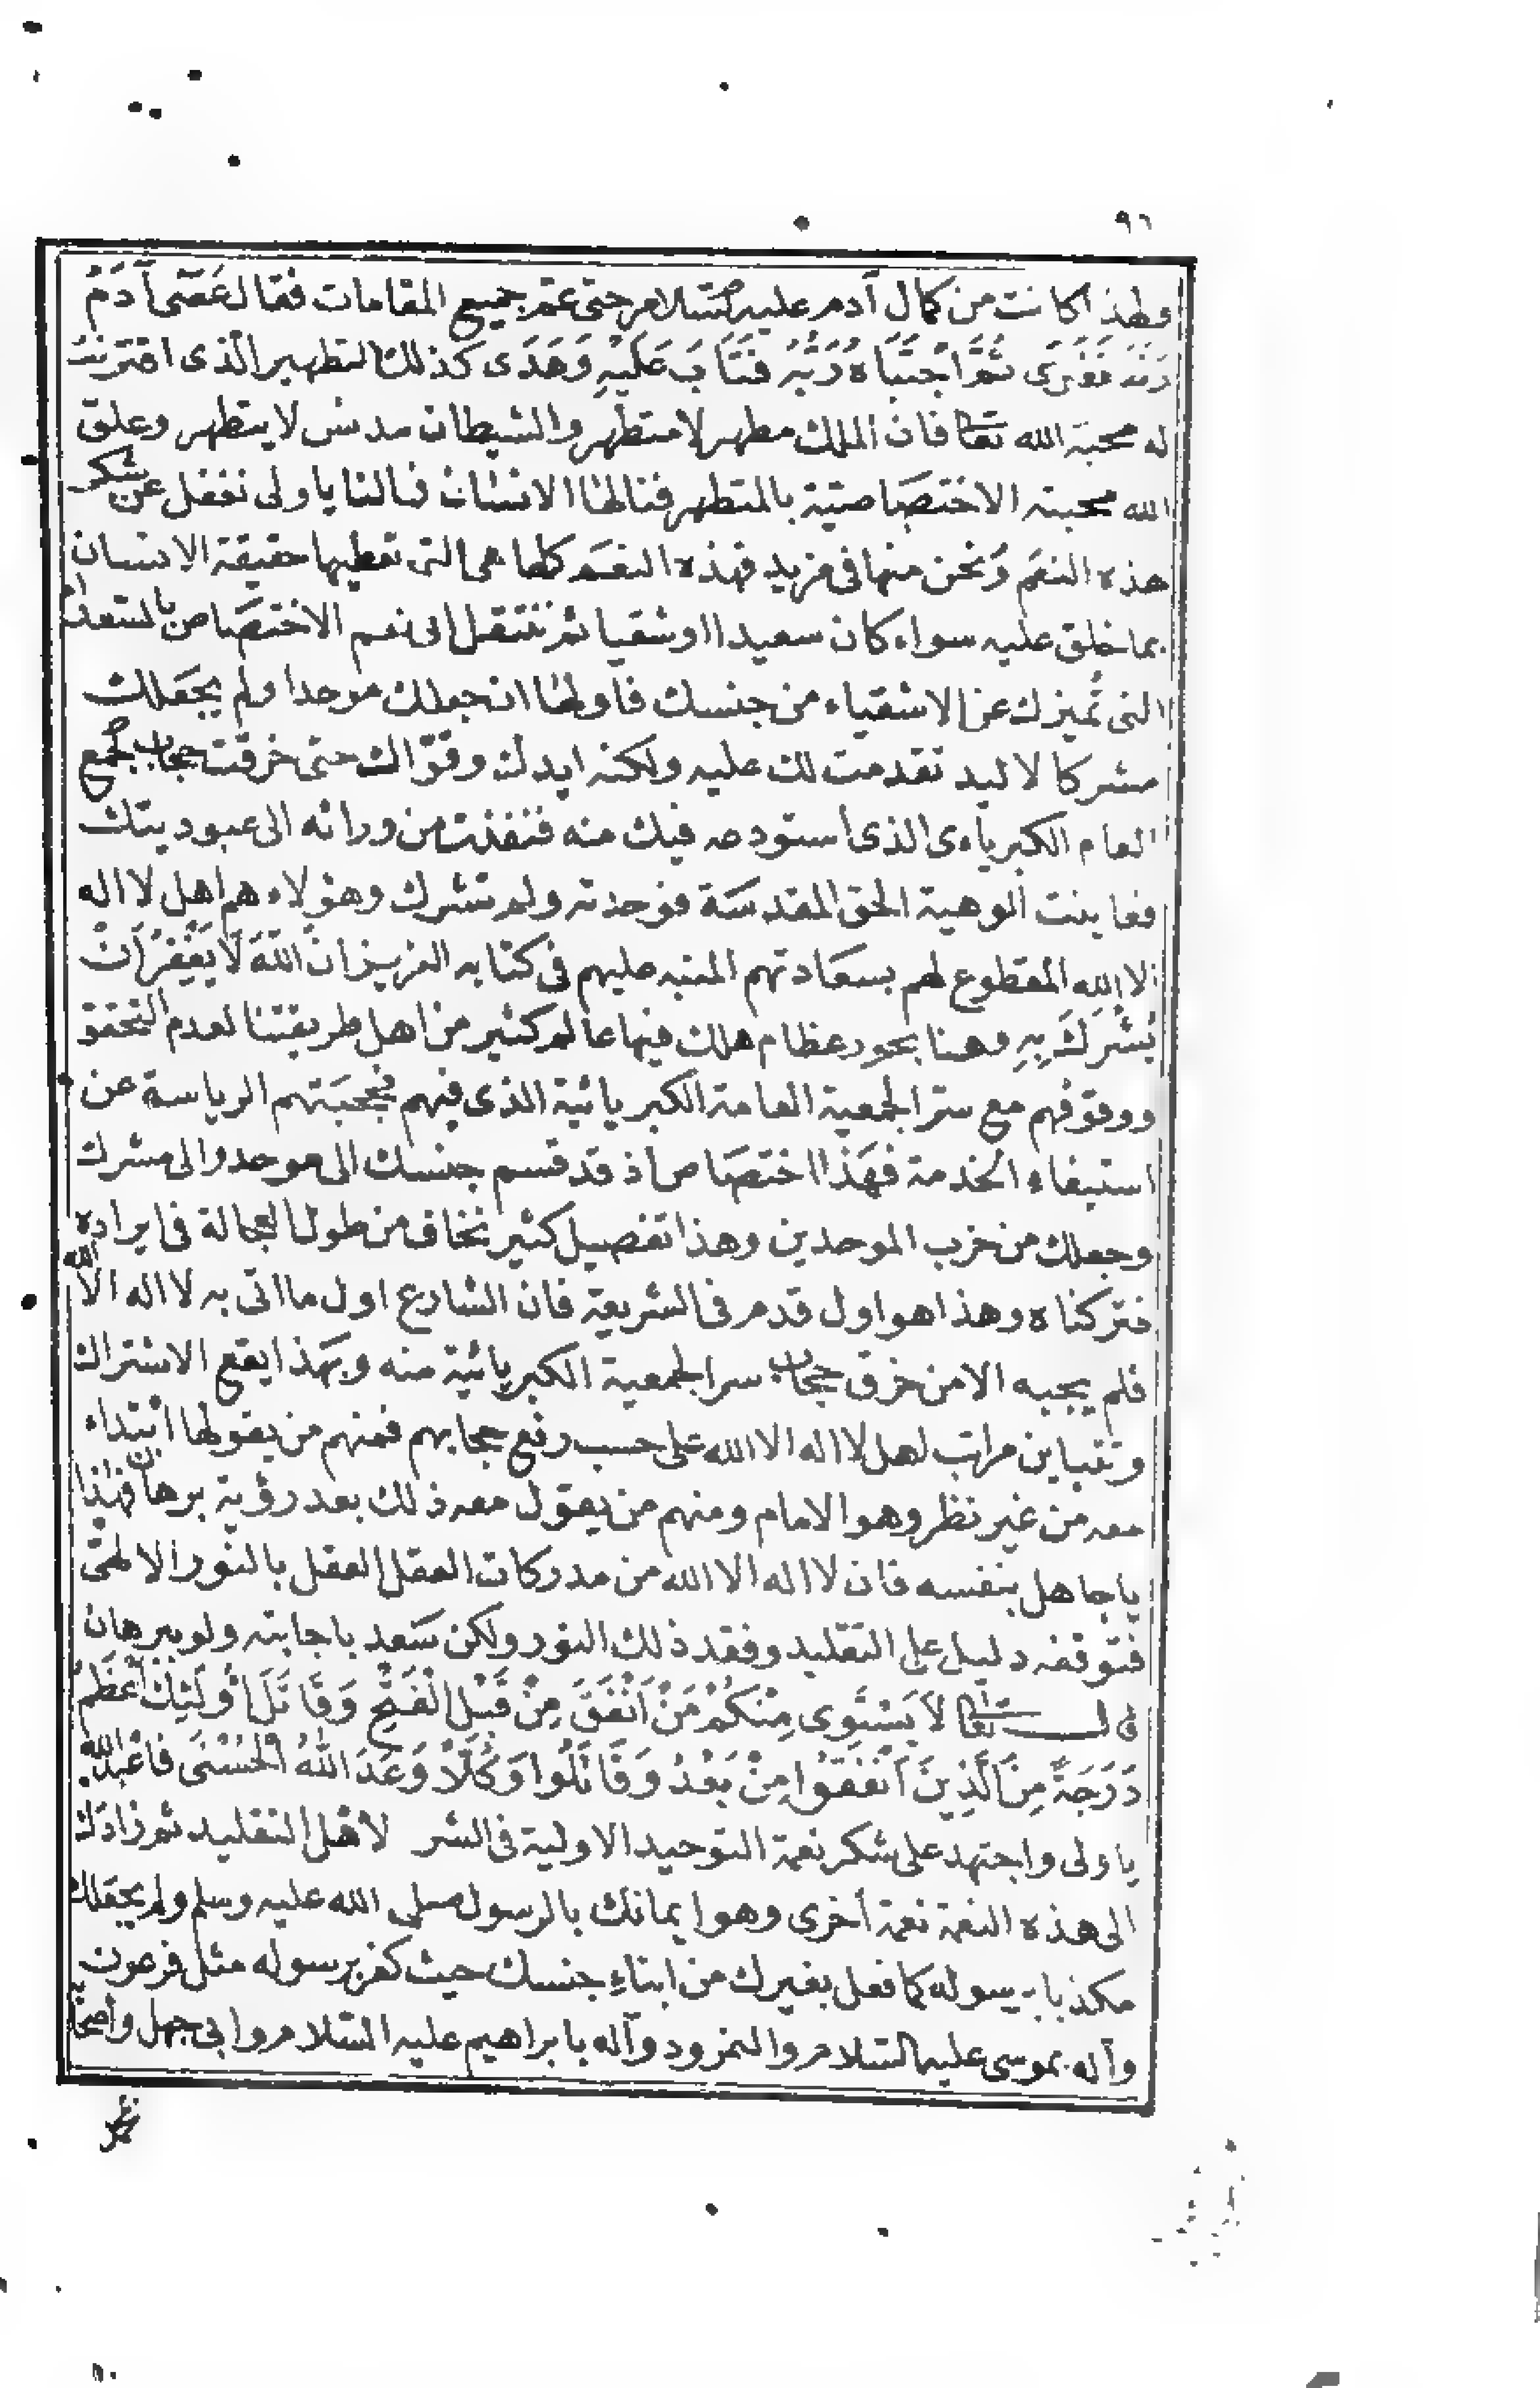 ٩٦
ولهذا كانت من كمال آدم عليه السلام حتى عم جميع المقامات فقال عَصَى آدَمُ
رَبَّهُ فَغَوَى ثُمَّ اجْتَبَاهُ رَبُّهُ فَتَابَ عَلَيْهِ وَهَدَى كذلك التطهير الذى اقترنت
له محبة الله تعالى فان الملك مطهر لا متطهر والشيطان مدنس لا يتطهر وعلق
الله محبته الاختصاصية بالمتطهر فنالها الانسان فما لنا يا ولى نغفل عن شكر
هذه النعم ونحن منها فى مزيد فهذه النعم كلها هى التى تعطيها حقيقة الانسان
بما خلق عليه سواء كان سعيدا او شقيا ثم تنتقل الى نعم الاختصاص بالسعداء
التى تُميزك عن الاشقياء من جنسك فاولها ان جعلك موحدا ولم يجعلك
مشركا لا ليد تقدمت لك عليه ولكنه ايدك وقوّاك حتى خرقت حجاب الجمع
العام الكبرياءى الذى استودعه فيك منه فنفذت من ورائه الى عبوديتك
فعاينت الوهية الحق المقدسة فوحدته ولم تشرك وهؤلاء هم اهل لا اله
الا الله المقطوع لهم بسعادتهم المنبه عليهم فى كتابه العزيز ان اللهَ لَا يَغْفِرُ اَنْ
يُشْرَكَ بِهِ وهنا بحور عظام هلك فيها عالم كثير من اهل طريقتنا لعدم التحقق
ووقوفهم مع ستر الجمعية العامة الكبريائية الذى فيهم فحجبتهم الرياسة عن
استيفاء الخدمة فهذا اختصاص اذ قد قسم جنسك الى موحد والى مشرك
وجعلك من حزب الموحدين وهذا تفصيل كثير نخاف من طول العجالة فى ايراده
فتركناه وهذا هو اول قدم فى الشريعة فان الشارع اول ما اتى به لا اله الا الله
فلم يجبه الا من خرق حجاب سر الجمعية الكبريائية منه وبهذا يقع الاشتراك
وتتباين مراتب اهل لا اله الا الله على حسب رفع حجابهم فمنهم من يقولها ابتداء
معه من غير نظر وهو الامام ومنهم من يقول معه ذلك بعد رؤية برهان فهذا
يا جاهل بنفسه فان لا اله الا الله من مدركات العقل العقل بالنور الالهىّ
فتوقفه دليل على التقليد وفقد ذلك النور ولكن سَعد باجابته ولو ببرهان
قال تعالى لَا يَسْتَوِى مِنْكُمْ مَنْ اَنْفَقَ مِنْ قَبْلِ الْفَتْحِ وَقَاتَلَ اُولَئِكَ أَعْظَمُ
دَرَجَةً مِنَ الَّذِينَ اَنْفَقُوا مِنْ بَعْدُ وَقَاتَلُوا وَكُلًّا وَعَدَ اللهُ الْحُسْنَى فاعبد الله
يا ولى واجتهد على شكر نعمة التوحيد الاولية فى الشر لاهل التقليد ثم زادك
الى هذه النعمة نعمة أخرى وهو ايمانك بالرسول صلى الله عليه وسلم ولم يجعلك
مكذبا برسوله كما فعل بغيرك من ابناء جنسك حيث كفر برسوله مثل فرعون
وآله بموسى عليه السلام والنمرود وآله بابراهيم عليه السلام وابى جهل واصحابه